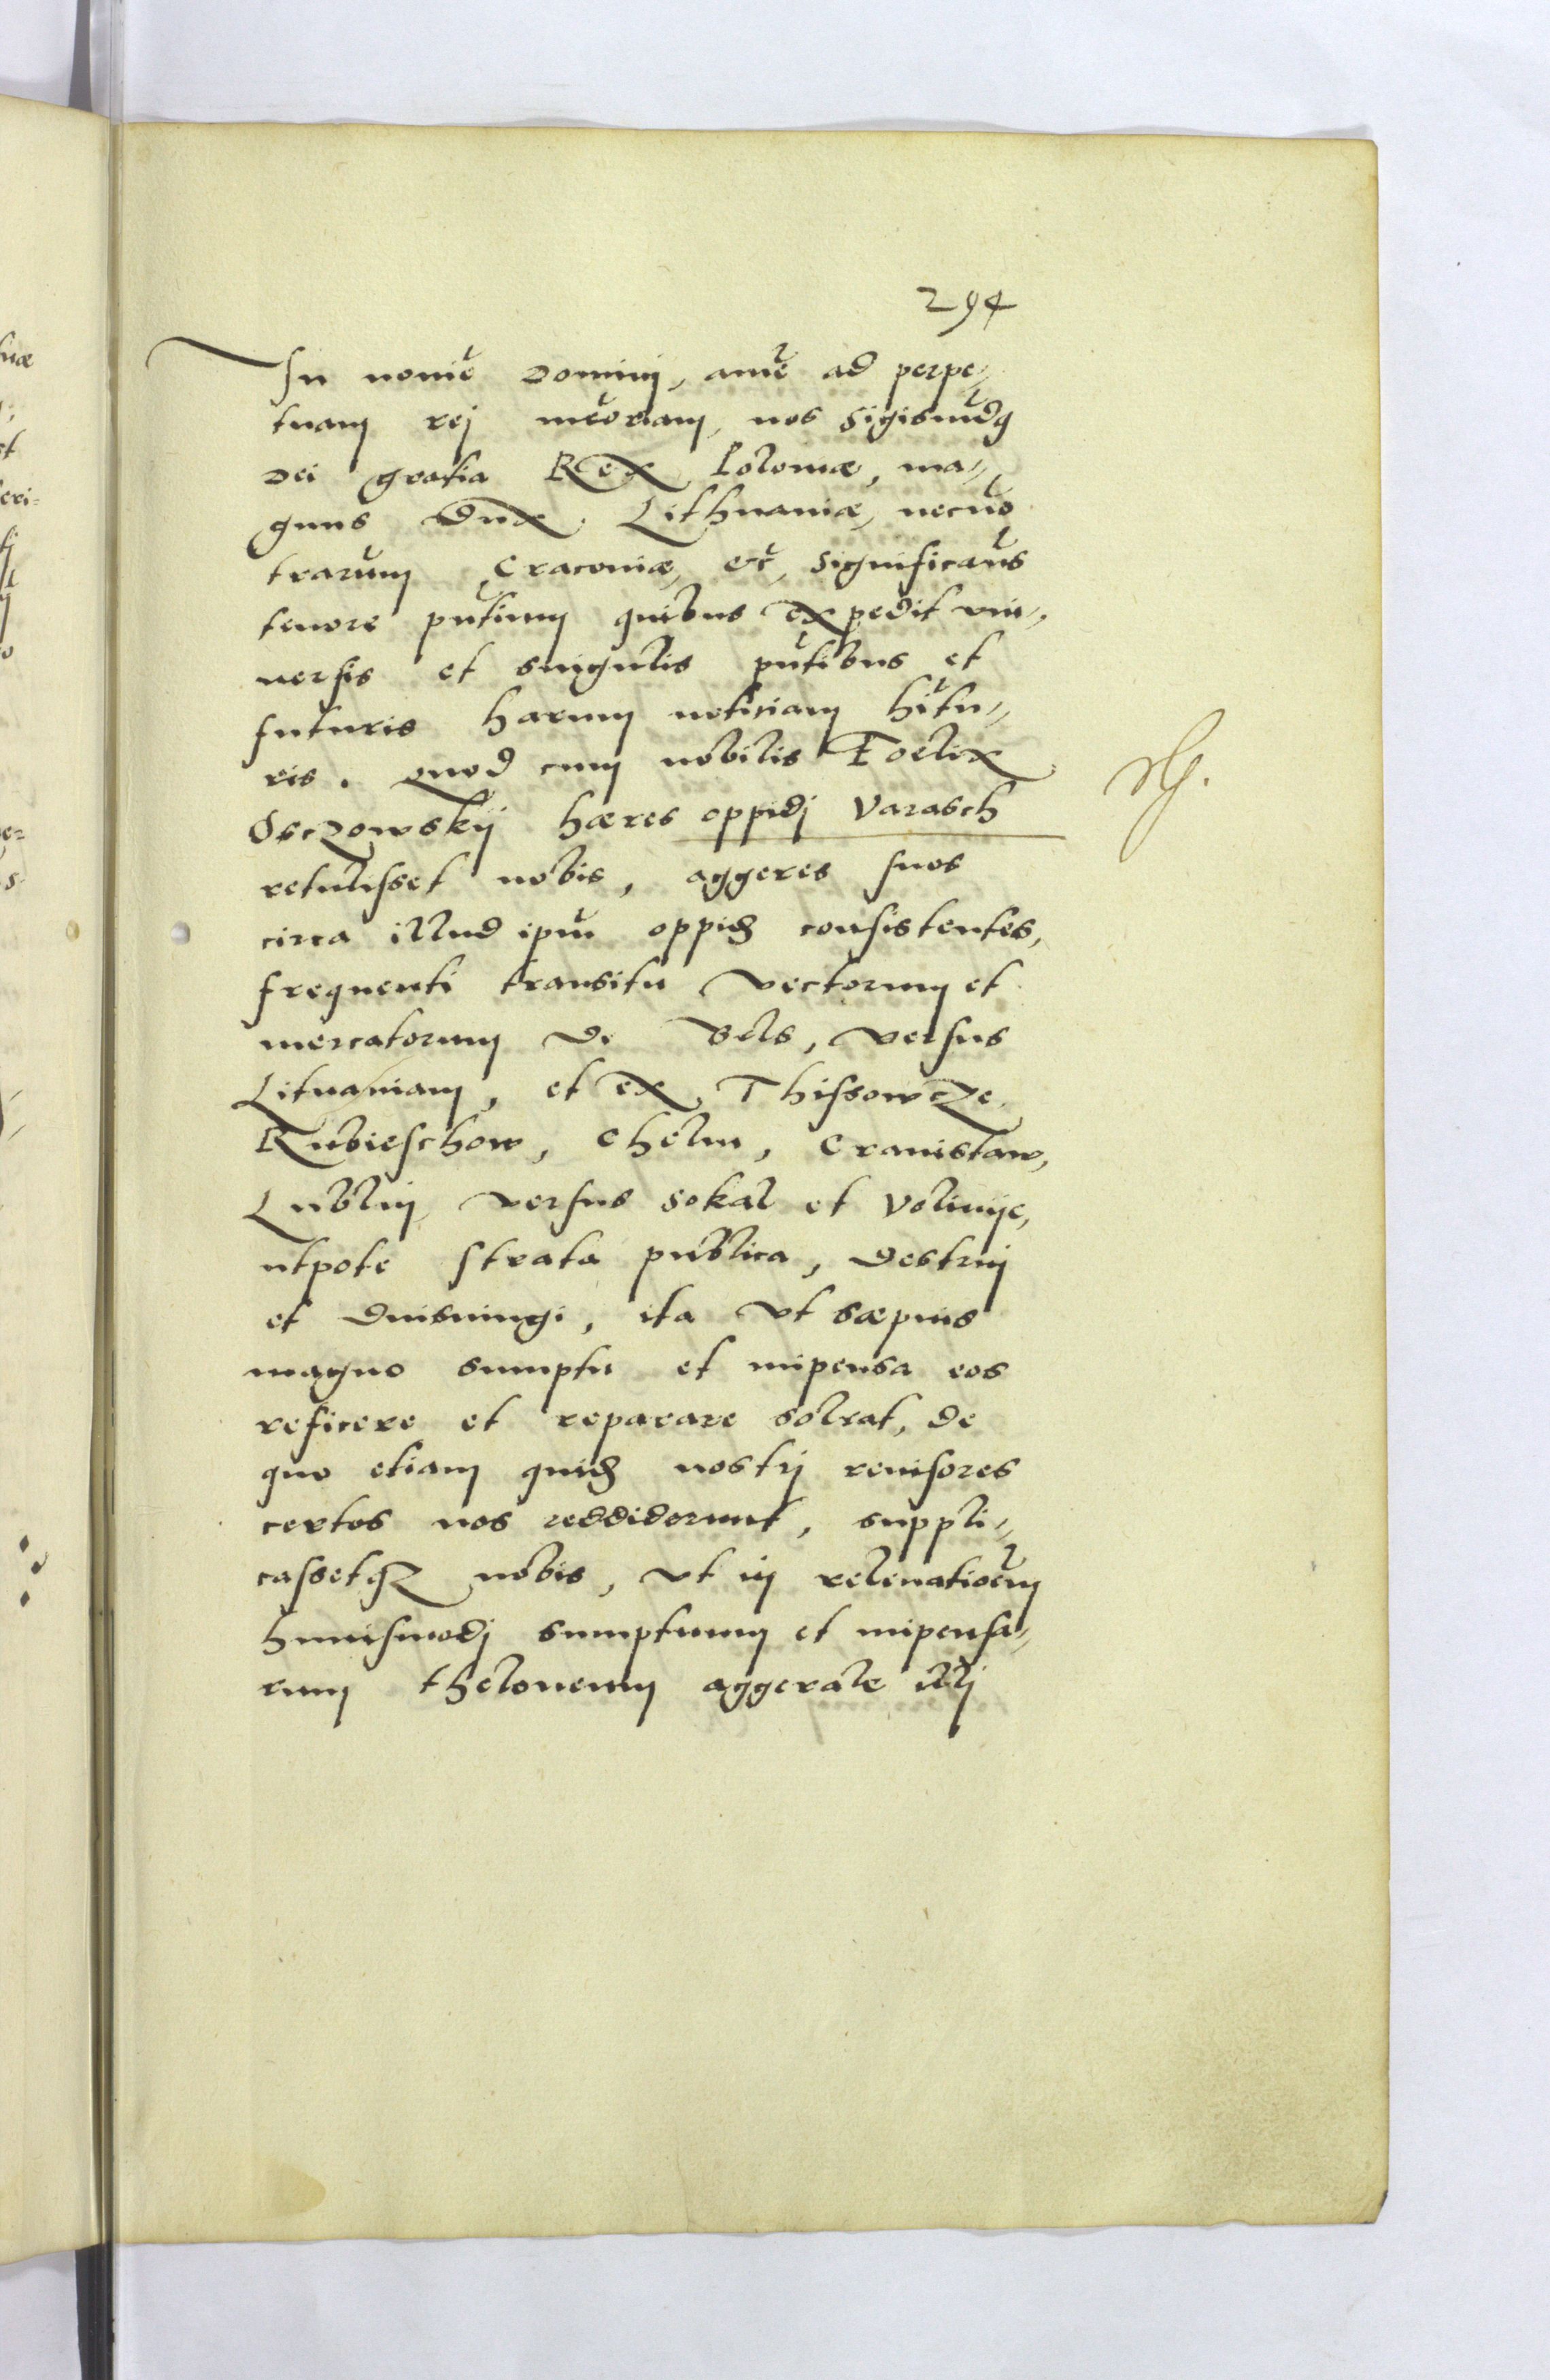 294
In nomīe Dominj, amē ad perpe¬
tuam rej mēoriam, nos Sigismūdq
Dei gratia Rex Poloniæ, ma¬
gnus Dux Lithuaniæ, necnō
trarūm Cracoviæ, etc̄, significaūs
tenore pn̄tium quibus expedit vni¬
uersis et singulis pn̄tibus et
futuris harum noticiam hītu¬
ris. Quod cum nobilis Foelix
Osczowskij hæres oppidj Varasch
retulisset nobis, aggeres suos
circa illud ipm̄ oppidū consistentes,
frequenti transitu vectorum et
mercatorum de Bels, versus
Lituaniam, et ex Thissowcze
Rubieschow, Chelm, Cranistaw,
Lublin versus Sokal et Volinije,
utpote strata publica, destruj
et disiungi, ita vt sæpius
magno sumptu et impensa eos
reficere et reparare soleat, de
quo etiam quidē nostrj reuisores
certos nos reddiderunt, suppli¬
cassetq₃ nobis, vt in releuatioēm
huiusmodj sumptuum et impensa¬
rum theloneum aggerale illj